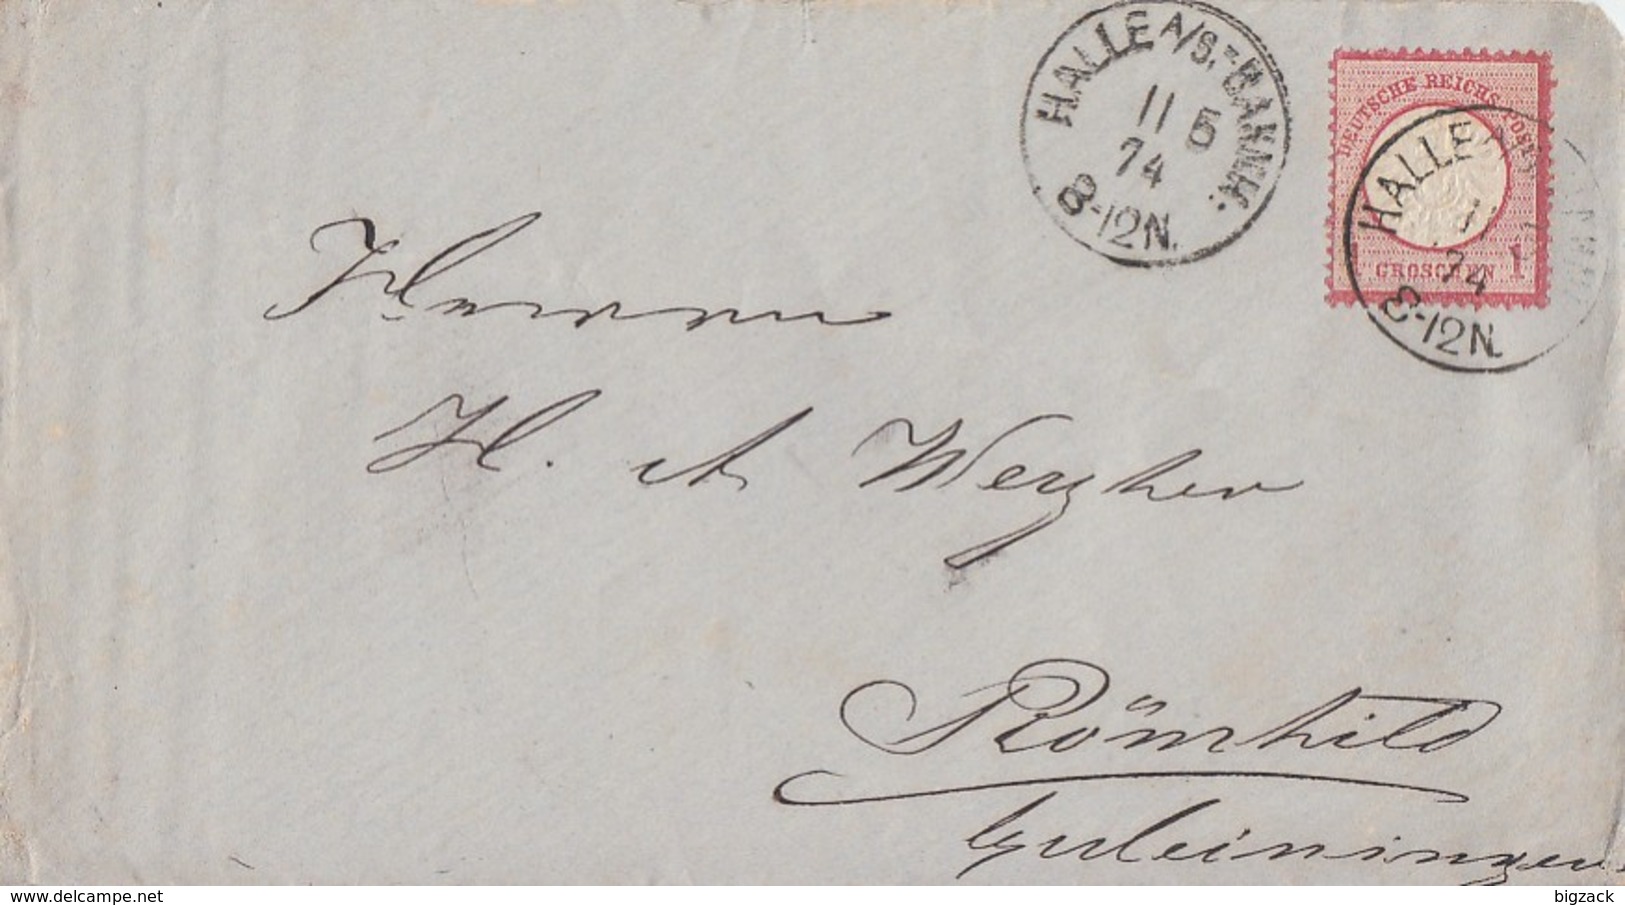 HALLE A/S.-BAHNH.
11 5
74
8-12N.
DEUTSCHE REICHS-POST
1 GROSCHEN 1
HALLE
11
74
8-12N.
Herrn
H. A Weyher
Römhild
delcampe.net
bigzack